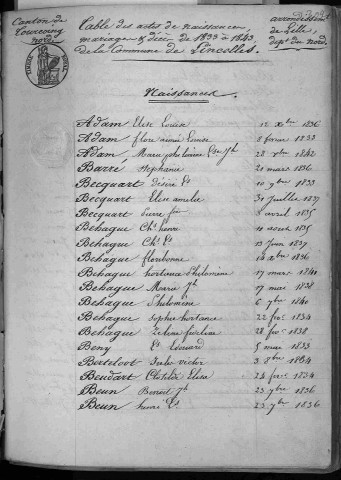 Canton de
Tourcoing
nord
Table des actes de naissances,
mariages & décès de 1833 à 1843
de la Commune de Lincelles.
arrondissem^t
de Lille,
dép^t du Nord.
Naissances.
Adam Elise Louise 12 x^bre 1836
Adam flore aimée Louise 8 fevrier 1833
Adam Marie 28 1842
Barre Stephanie 21 mars 1836
Becquart Désiré 10 9^bre 1833
Becquart Elise amelie 31 Juillet 1837
Becquart Pierre f^ois 8 avril 1835
Behague Ch^s henri 11 aout 1835
Behague Ch^s L^s 13 Juin 1837
Behague floribonne 14 x^bre 1836
Behague hortense philomène 17 mars 1840
Behague Marie J^h 17 mai 1838
Behague Philomène 6 7^bre 1840
Behague Sophie hortance 22 fev^r 1834
Behague Zeline 28 fev^r 1838
Beny L^s Léonard 5 mai 1833
Berteloot Jules victor 3 1834
Beudart Clotilde Elisa 24 fev^r 1834
Beun Benoit J^h 23 9^bre 1836
Beun henri L^s 23 9^bre 1836